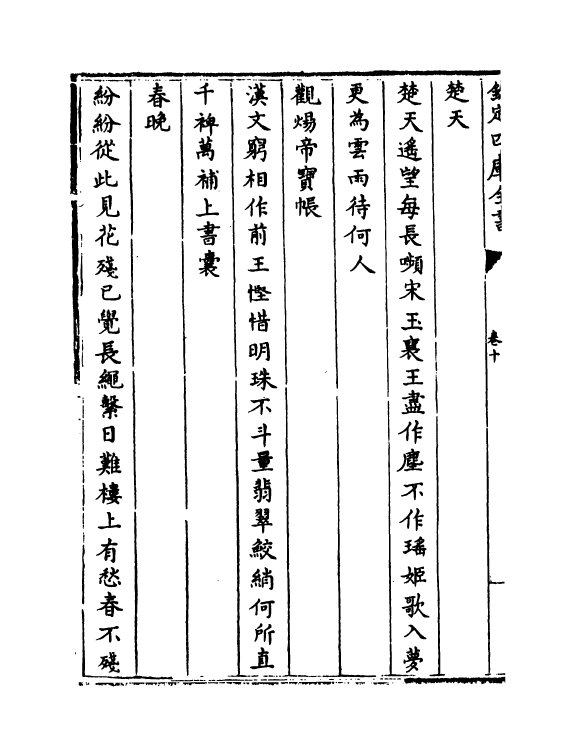 欽定四庫全書
卷十
楚天
楚天遙望每長嚬宋玉襄王盡作塵不作瑤姬歌入夢
更為雲雨待何人
觀煬帝寶帳
漢文窮相作前王慳惜明珠不斗量翡翠鮫綃何所直
千裨萬補上書囊
春晚
紛紛從此見花殘已覺長繩繫日難樓上有愁春不殘